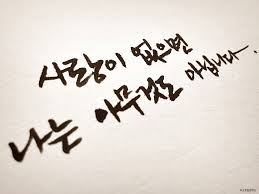 사랑이 없으면
나는 아무것도 아닙니다.